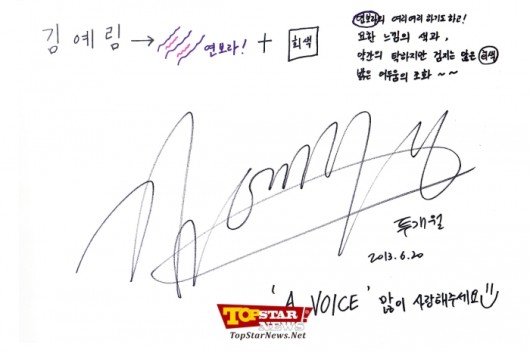 김예림 → 연보라! + 회색
연보라의 여리여리하기도 하고!
묘한 느낌의 색과,
약간의 탁하지만 검지는 않은 회색
밝은 어두움의 조화 ~ ~
투개월
2013.6.20
'A VOICE' 많이 사랑해주세요
TOPSTAR
NEWS
TopStarNews.Net